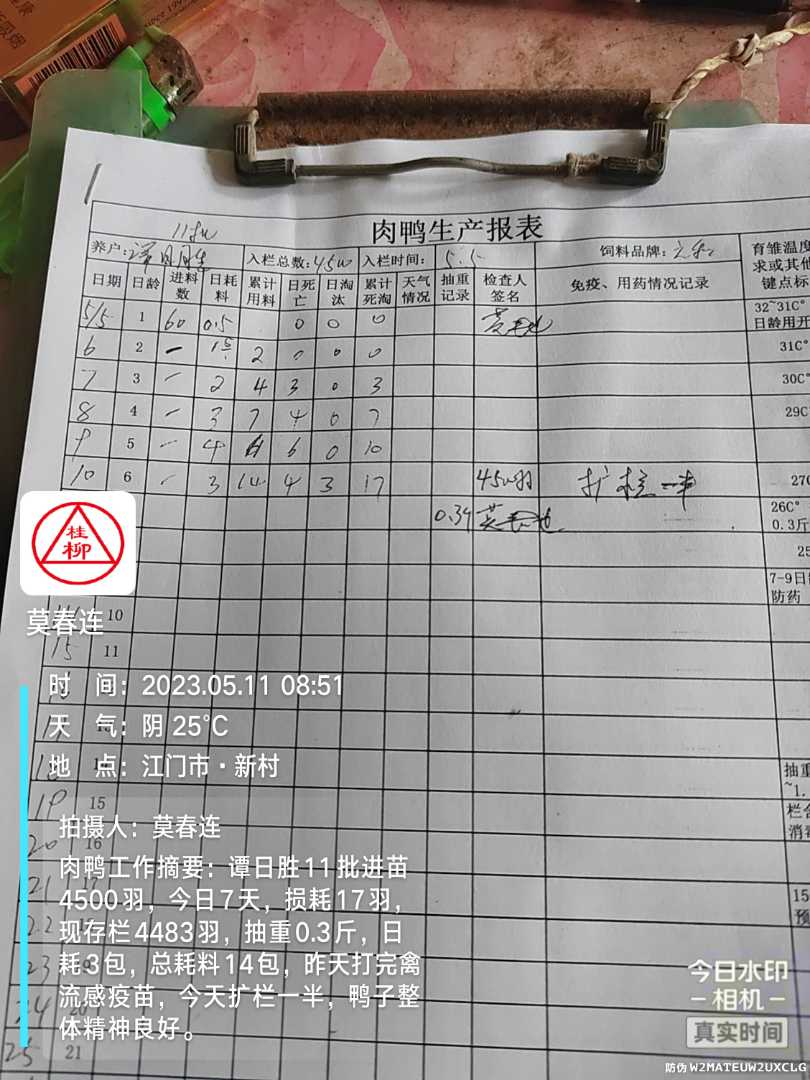 肉鸭生产报表
养户: 入栏总数:4500 入栏时间:5.5 饲料品牌: 育雏温度
求或其他
键点标
日期 日龄 进料数 日耗料 累计用料 日死亡 日淘汰 累计死淘 天气情况 抽重记录 检查人签名 免疫、用药情况记录
5/5 1 60 0.5 0 0 0 32~31C°
日龄用开
6 2 一 1.5 2 0 0 0 31C°
7 3 一 2 4 3 0 3 30C°
8 4 一 3 7 4 0 7 29C
9 5 一 4 11 6 0 10
10 6 一 3 14 4 3 17 4500羽 扩栏一半 270
26C°
0.3斤
25
7-9日
防药
桂柳
莫春连
10
15 11
时 间：2023.05.11 08:51
天 气：阴 25℃
地 点：江门市·新村
抽重
~1.
栏舍
消毒
19 15
20 16
21 17
22
23
24 20
25 21
15
预
拍摄人：莫春连
肉鸭工作摘要：谭日胜11批进苗
4500羽，今日7天，损耗17羽，
现存栏4483羽，抽重0.3斤，日
耗3包，总耗料14包，昨天打完禽
流感疫苗，今天扩栏一半，鸭子整
体精神良好。
今日水印
-相机-
真实时间
防伪 W2MATEUW2UXCLG